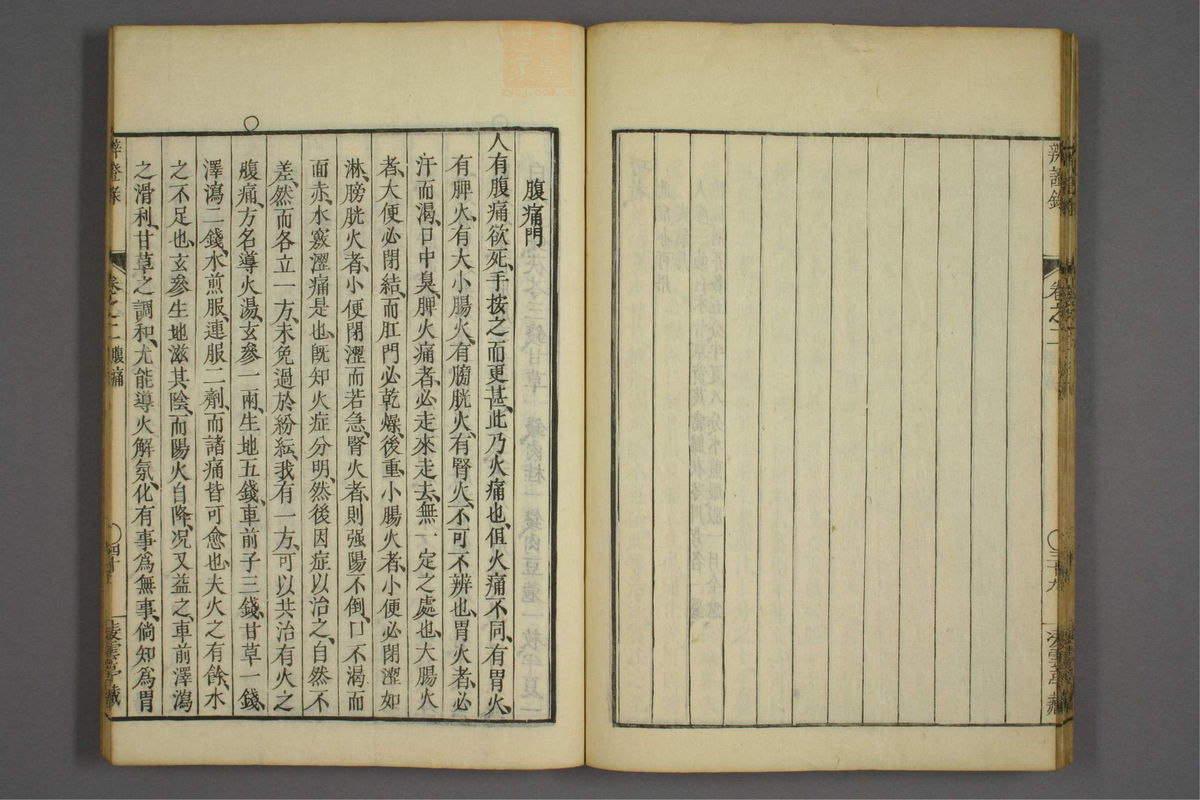 辨證錄
卷之二
三十九
腹痛門
人有腹痛欲死、手按之而更甚、此乃火痛也、但火痛不同、有胃火、
有脾火、有大小腸火、有膀胱火、有腎火、不可不辨也、胃火者、必
汗而渴、口中臭、脾火痛者、必走來走去、無一定之處也、大腸火
者、大便必閉結、而肛門必乾燥、後重、小腸火者、小便必閉澀如
淋、膀胱火者、小便閉澀而若急、腎火者、則强陽不倒、口不渴而
面赤、水竅澀痛是也、旣知火症分明、然後因症以治之、自然不
差、然而各立一方、未免過於紛紜、我有一方、可以共治有火之
腹痛、方名導火湯、玄參一兩、生地五錢、車前子三錢、甘草一錢、
澤瀉二錢、水煎服、連服二劑、而諸痛皆可愈也、夫火之有餘、水
之不足也、玄參生地滋其陰、而陽火自降、况又益之、車前澤瀉
之滑利、甘草之調和、尤能導火解氛、化有事爲無事、倘知爲胃
辨證錄
卷之二 腹痛
四十
凌雲亭藏